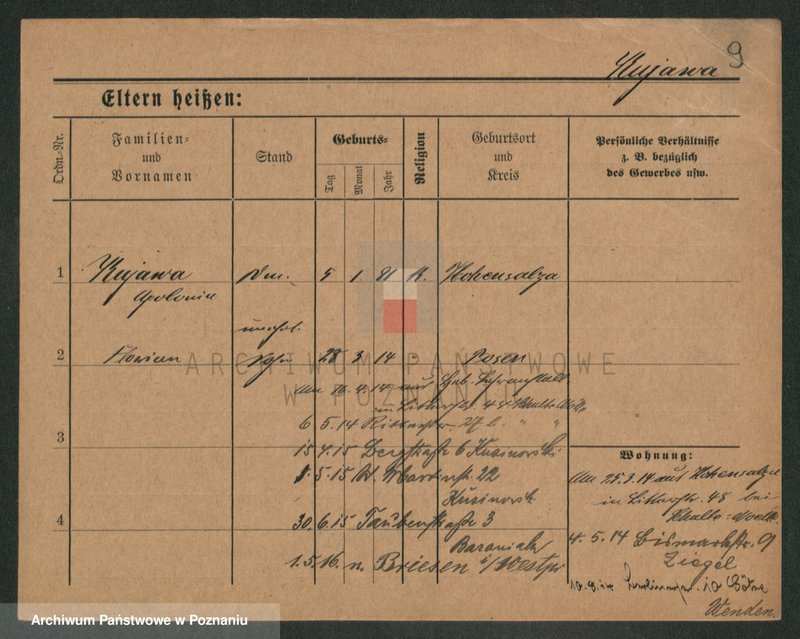 9
Kujawa
Eltern heißen:
Ordn.-Nr.
Familien-
und
Vornamen
Stand
Geburts-
Tag
Monat
Jahr
Religion
Geburtsort
und
Kreis
Persönliche Verhältnisse
z. B. bezüglich
des Gewerbes usw.
1 Kujawa 5 1. 91 K. Hohensalza
Apolonia
unehel.
2 Florian Sohn 28 3. 14 " Posen
4. 14 aus Heb. Lehranstalt
6 5. 14 Ritterstr. " "
3
15 4. 15 Bergstraße 6 Kusinorski
5. 15 W. 22
Kusinorsk
4
30. 6. 15 Taubenstraße 3
Baraniak
1. 5. 16. n. Briesen i/Westpr
Wohnung:
Am 25. 3. 14 aus Hohensalza
in 48 bei
4. 5. 14 Bismarckstr. 9
Ziegel
10. 8. 14 10
Wenden.
ARCHIWUM PAŃSTWOWE
W POZNANIU
Archiwum Państwowe w Poznaniu